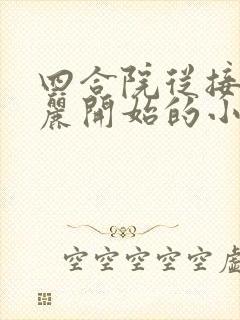 四合院従接
麗開始的小
空空空空空虛